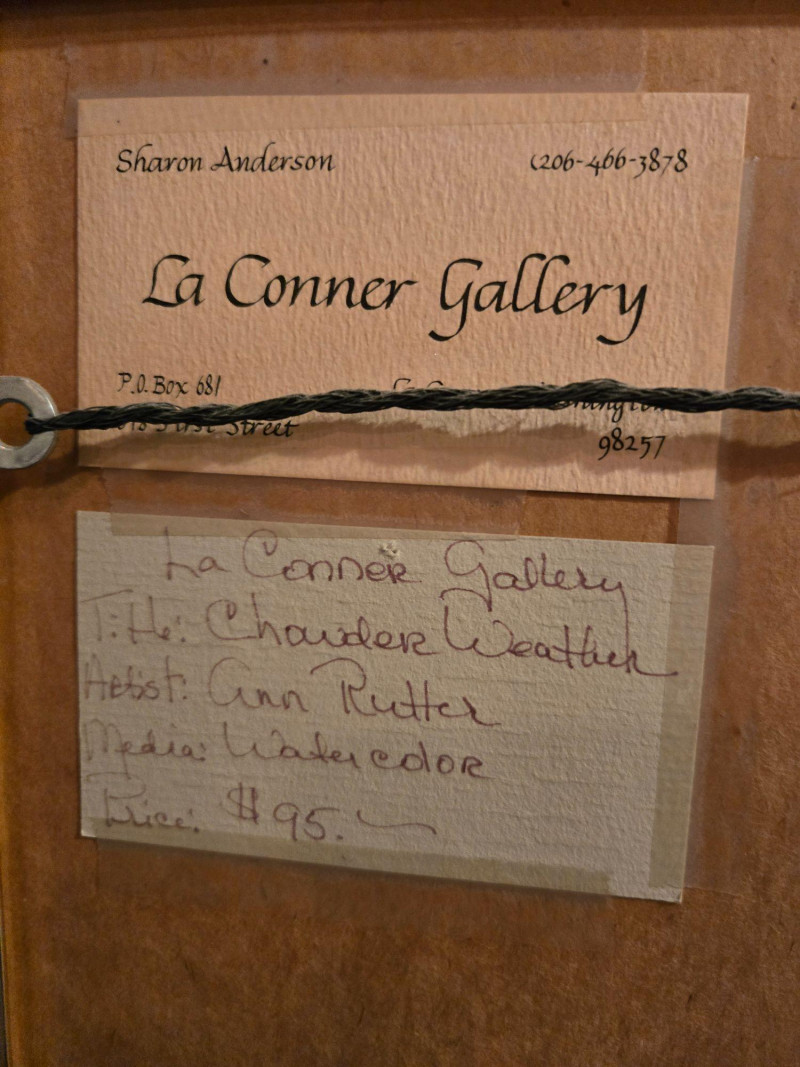 Sharon Anderson (206-466-3878
La Conner Gallery
P.O. Box 681
First Street 98257
La Conner Gallery
Title: Chowder Weather
Artist: Ann Rutter
Media: Watercolor
Price: $95.